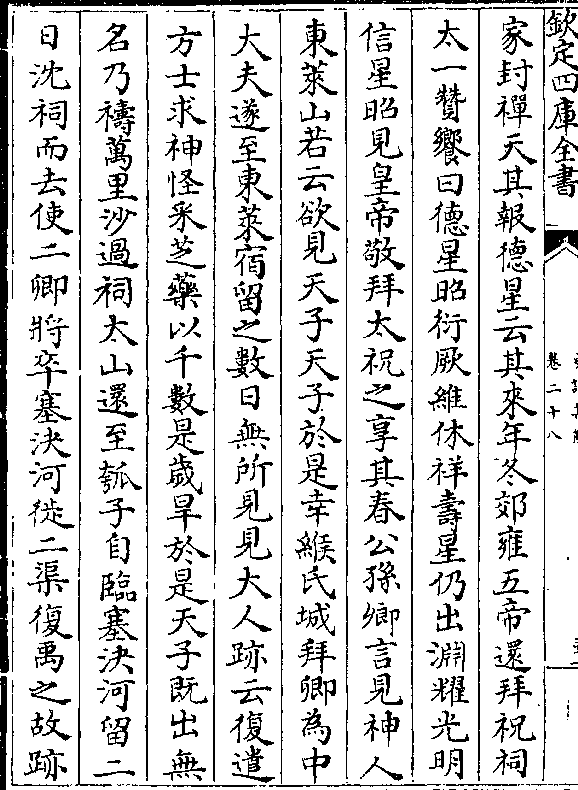 欽定四庫全書
卷二十八
家封禪天其報德星云其來年冬郊雍五帝還拜祝祠
太一贊饗曰德星昭衍厥維休祥壽星仍出淵耀光明
信星昭見皇帝敬拜太祝之享其春公孫卿言見神人
東萊山若云欲見天子天子於是幸緱氏城拜卿為中
大夫遂至東萊宿留之數日無所見見大人跡云復遣
方士求神怪采芝藥以千數是歲旱於是天子既出無
名乃禱萬里沙過祠太山還至瓠子自臨塞決河留二
日沈祠而去使二卿將卒塞決河徙二渠復禹之故跡